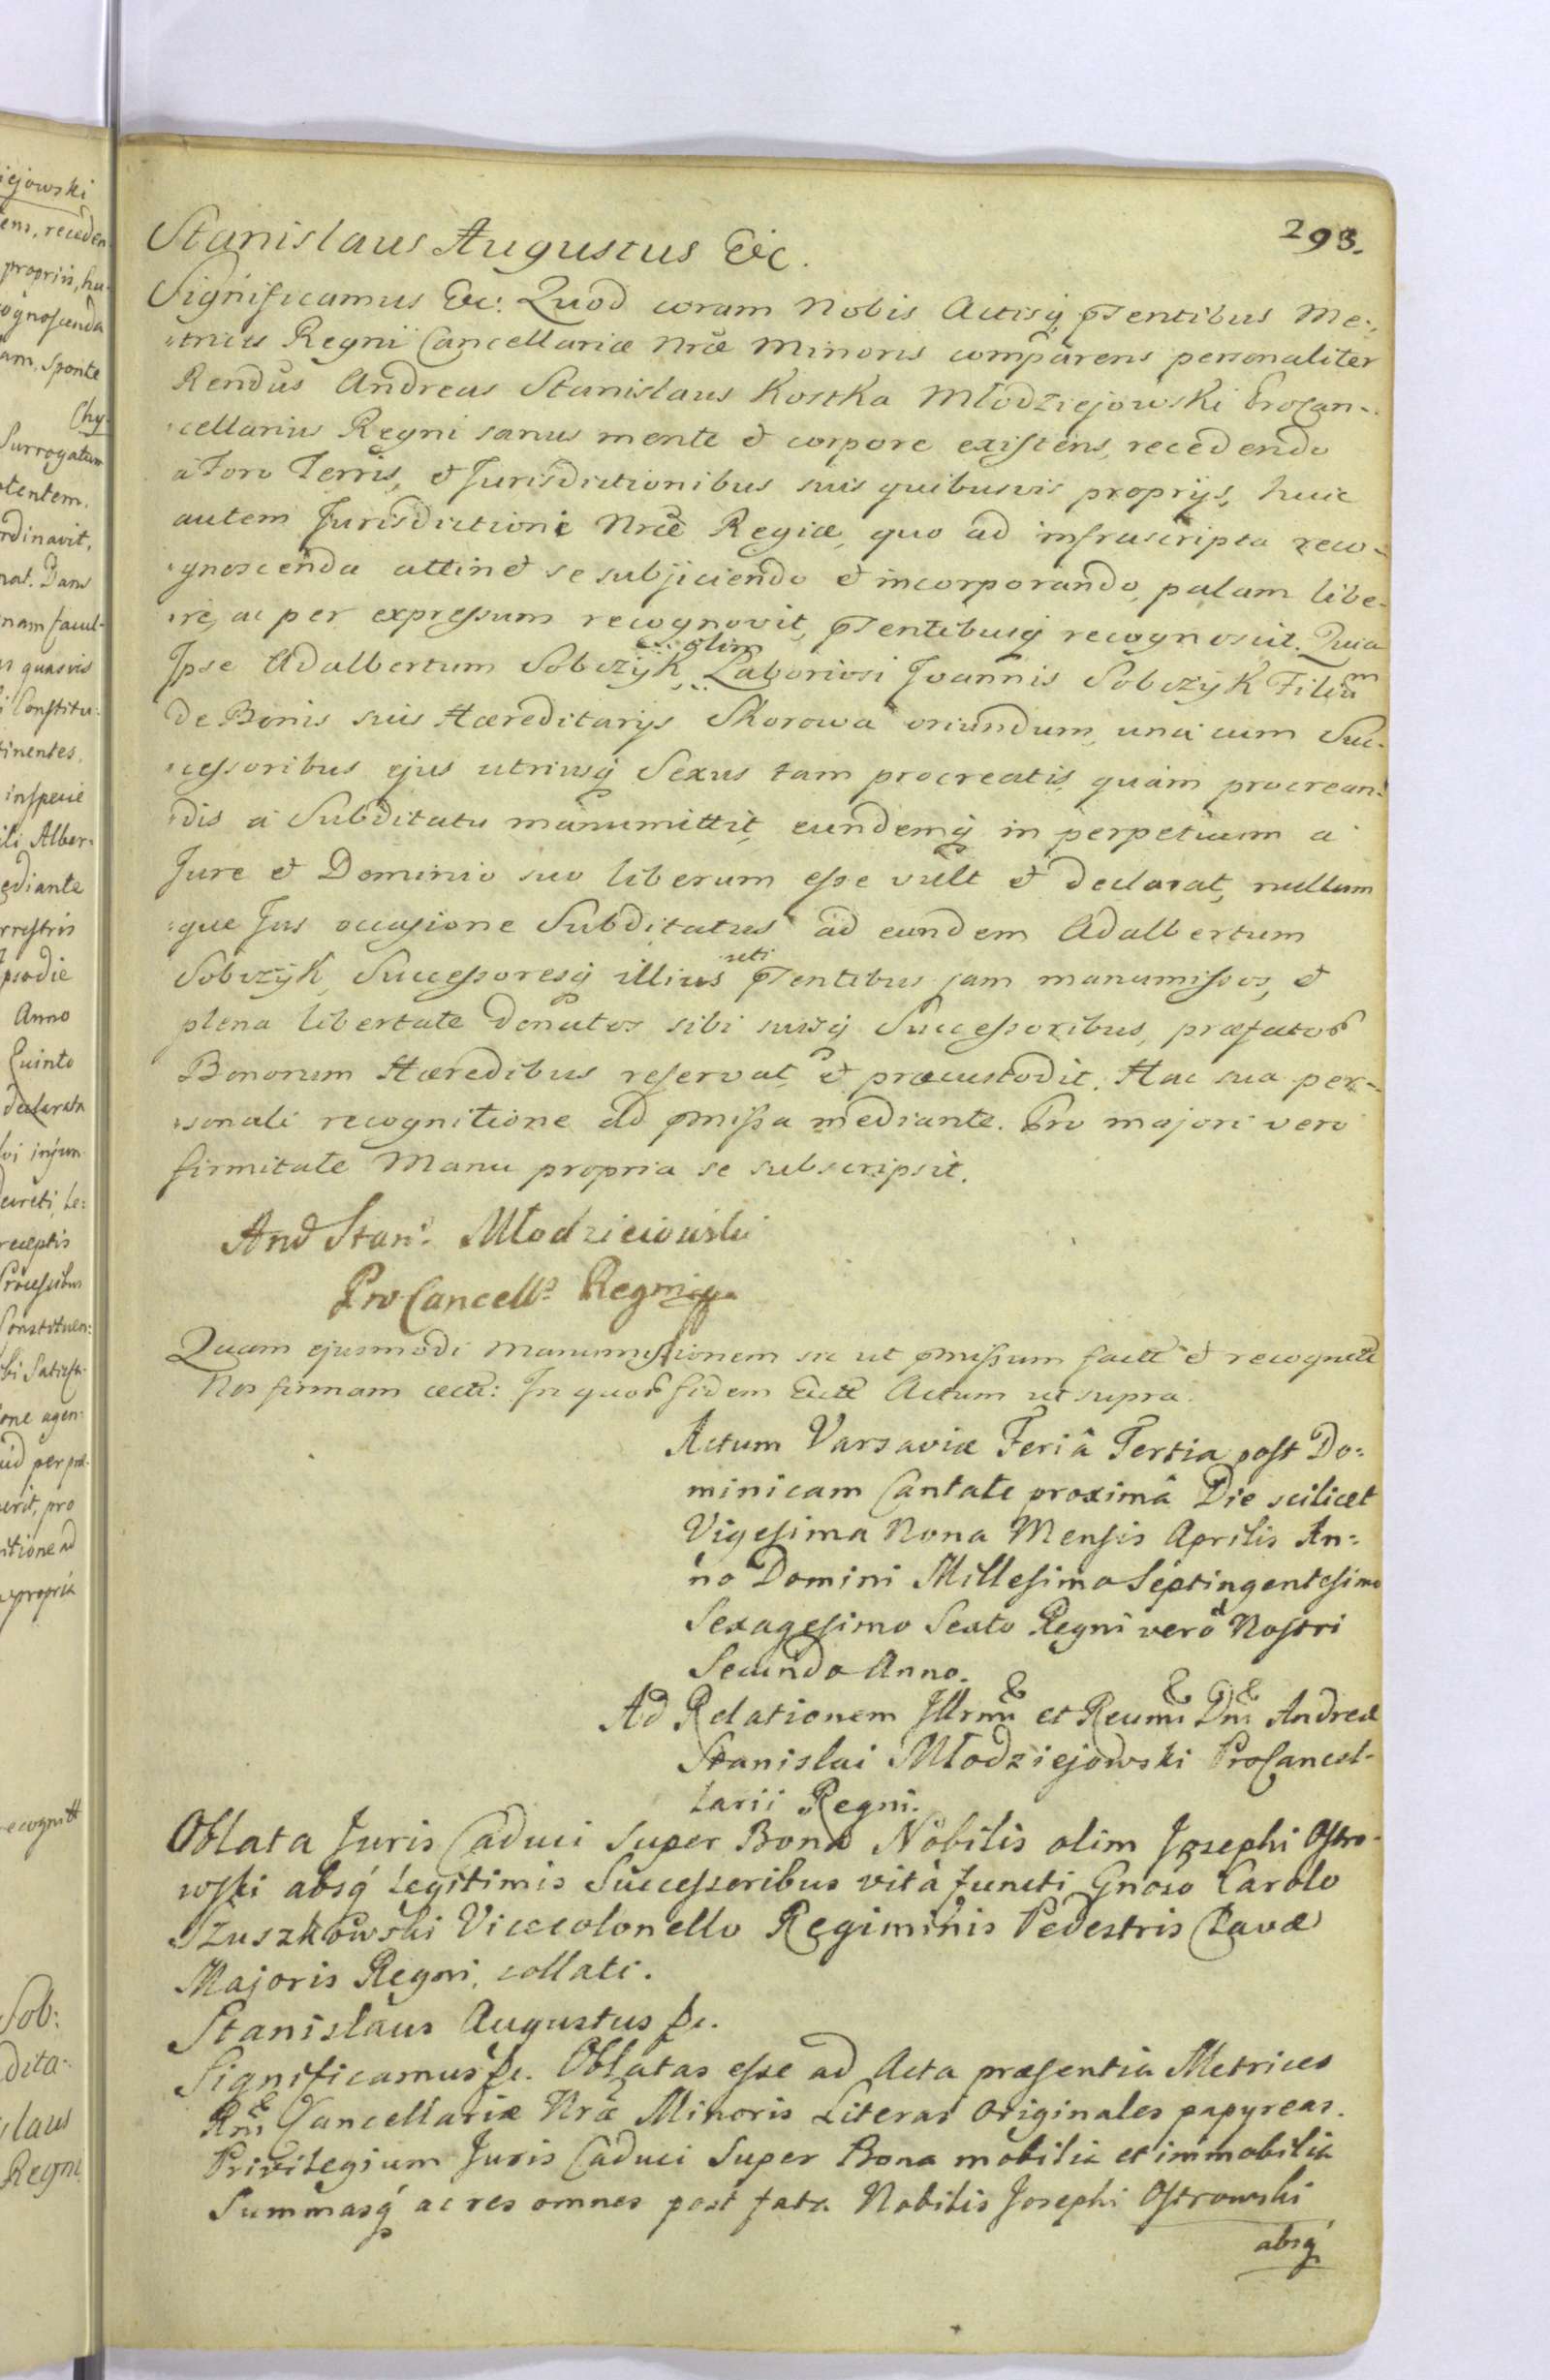 293.
Stanislaus Augustus Etc.
Significamus Etc: Quod coram Nobis Actisq; pntentibus Me-
tricis Regni Cancellariæ Nræ Minoris comparens personaliter
Rendus Andreas Stanislaus Kostka Młodziejowski Procan-
cellarius Regni sanus mente et corpore existens, recedendo
a Foro Terris, et Jurisdictionibus suis quibusvis proprijs, huic
autem Jurisdictioni Nræ Regiæ, quo ad infrascripta reco-
gnoscenda attinet se subjiciendo et incorporando, palam libe-
re, ac per expressum recognovit, pntentibusq; recognoscit. Quia
Ipse Adalbertum Sobczyk, olim Laboriosi Joannis Sobczyk Filium
de Bonis suis Hæreditarijs Skorowa oriundum, una cum Suc-
cessoribus ejus utriusq; Sexus tam procreatis, quam procrean-
dis a Subditatu manumittit, eundemq; in perpetuum a
Jure et Dominio suo liberum esse vult et declarat, nullum
que Jus occasione Subditatus ad eundem Adalbertum
Sobczyk, Successoresq; illius uti pntentibus jam manumissos, et
plena libertate donatos sibi suisq; Successoribus, præfator
Bonorum Hæredibus reservat, et præcustodit. Hac sua per-
sonali recognitione ad pmissa mediante. Pro majori vero
firmitate Manu propria se subscripsit.
And Stan: Młodzieiowski
ProCancell: Regni
Quam ejusmodi Manumissionem sic ut pmissum factt et recognitt
Nos firmam cectt: In quor fidem Ectt Actum ut supra.
Actum Varsaviæ Feriâ Tertia post Do:
minicam Cantate proximâ Die scilicet
Vigesima Nona Mensis Aprilis An:
no Domini Millesimo Septingentesimo
Sexagesimo Sexto Regni vero Nostri
Secundo Anno.
Ad Relationem Illrmi et Reumi Dni Andreæ
Stanislai Młodziejowski ProCancel-
larii Regni.
Oblata Juris Caduci super Bona Nobilis olim Josephi Ostro-
wski absq; legitimis Successoribus vitâ functi Gnoso Carolo
Szuszkowski Vicecolonello Regiminis Pedestris Clavæ
Majoris Regni, collati.
Stanislaus Augustus &c.
Significamus &c. Oblatas esse ad Acta præsentia Metrices
Rni Cancellariæ Nræ Minoris Literas Originales papyreas.
Privilegium Juris Caduci Super Bona mobilia et immobilia
Summasq; ac res omnes post fata Nobilis Josephi Ostrowski
absq;